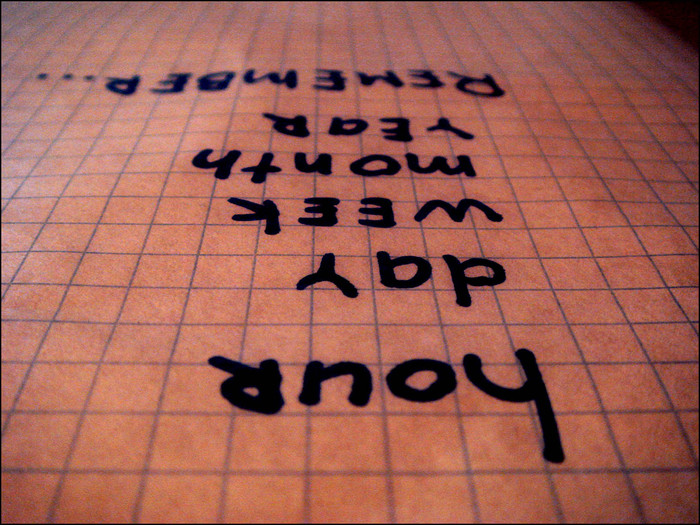 REMEMBER...
YEAR
month
WEEK
day
houR